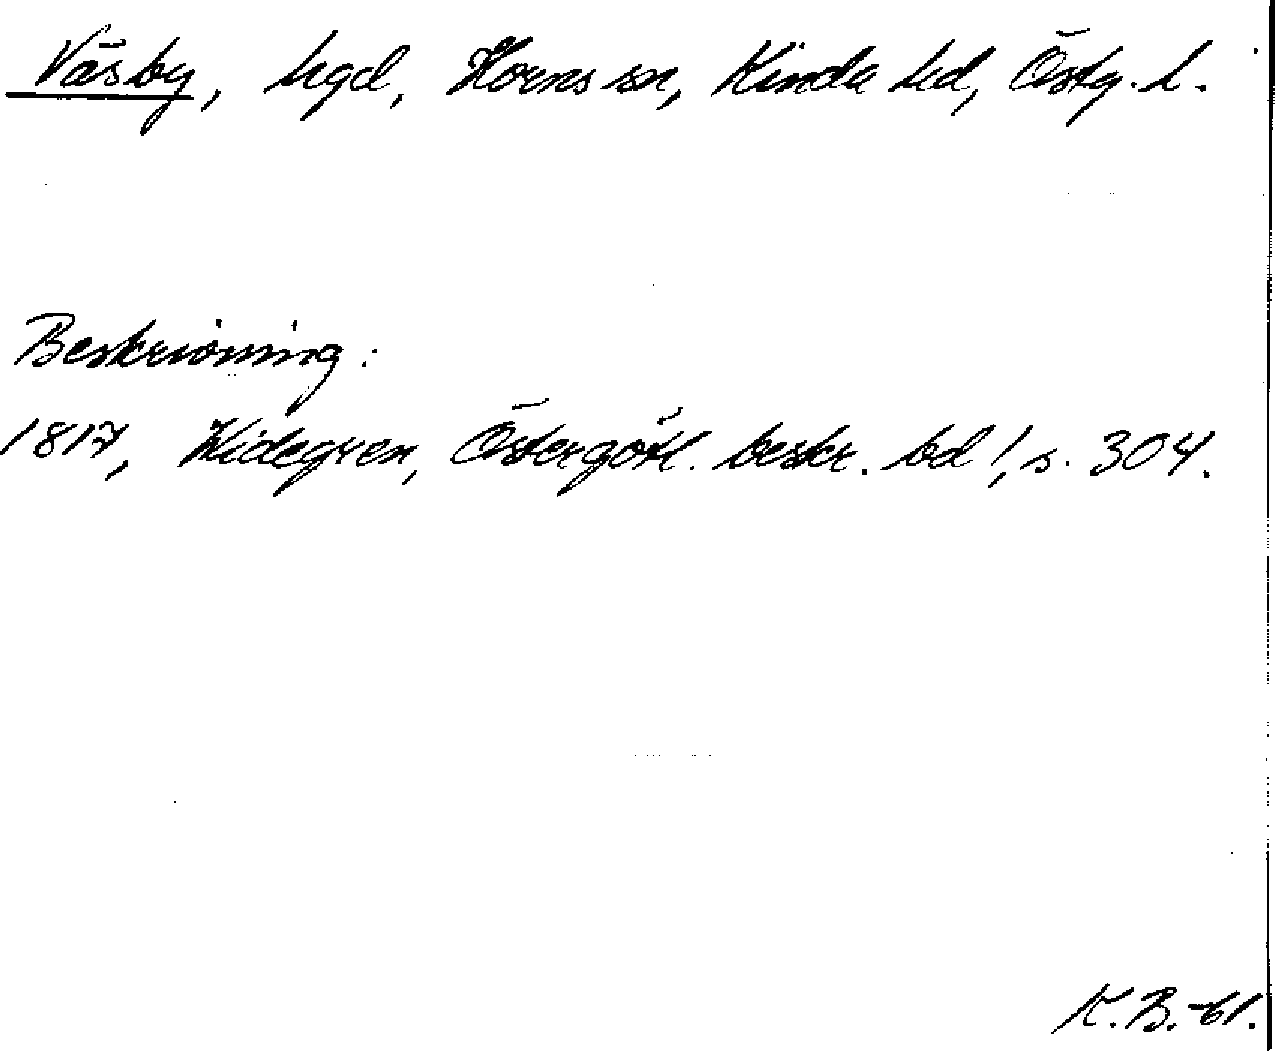 Väsby, hgd, Horns sn, Kinda hd, Östg. l.
Beskrivning:
1817, Widegren, Östergötl. beskr. bd 1, s. 304.
K.B. -61.